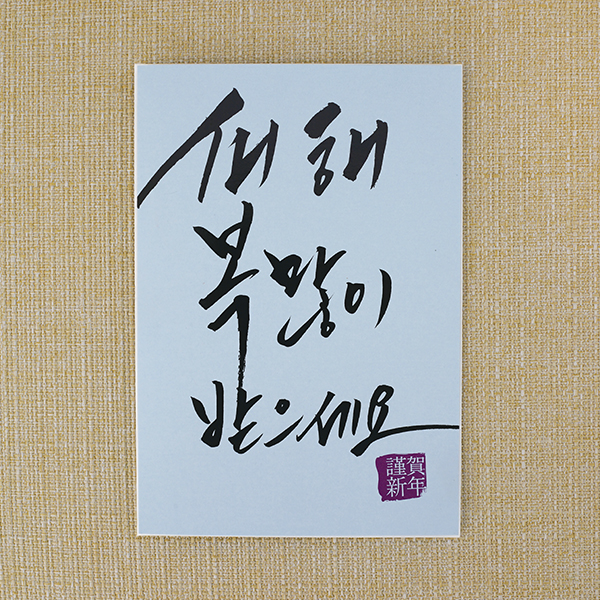 새해
복 많이
받으세요
謹賀
新年